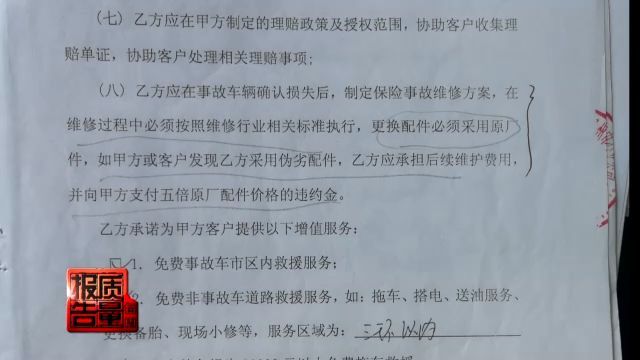 （七）乙方应在甲方制定的理赔政策及授权范围，协助客户收集理
赔单证，协助客户处理相关理赔事项；
（八）乙方应在事故车辆确认损失后，制定保险事故维修方案，在
维修过程中必须按照维修行业相关标准执行，更换配件必须采用原厂
件，如甲方或客户发现乙方采用伪劣配件，乙方应承担后续维护费用，
并向甲方支付五倍原厂配件价格的违约金。
乙方承诺为甲方客户提供以下增值服务：
1．免费事故车市区内救援服务；
2．免费非事故车道路救援服务，如：拖车、搭电、送油服务、
更换备胎、现场小修等，服务区域为：三环以内
质量
报告